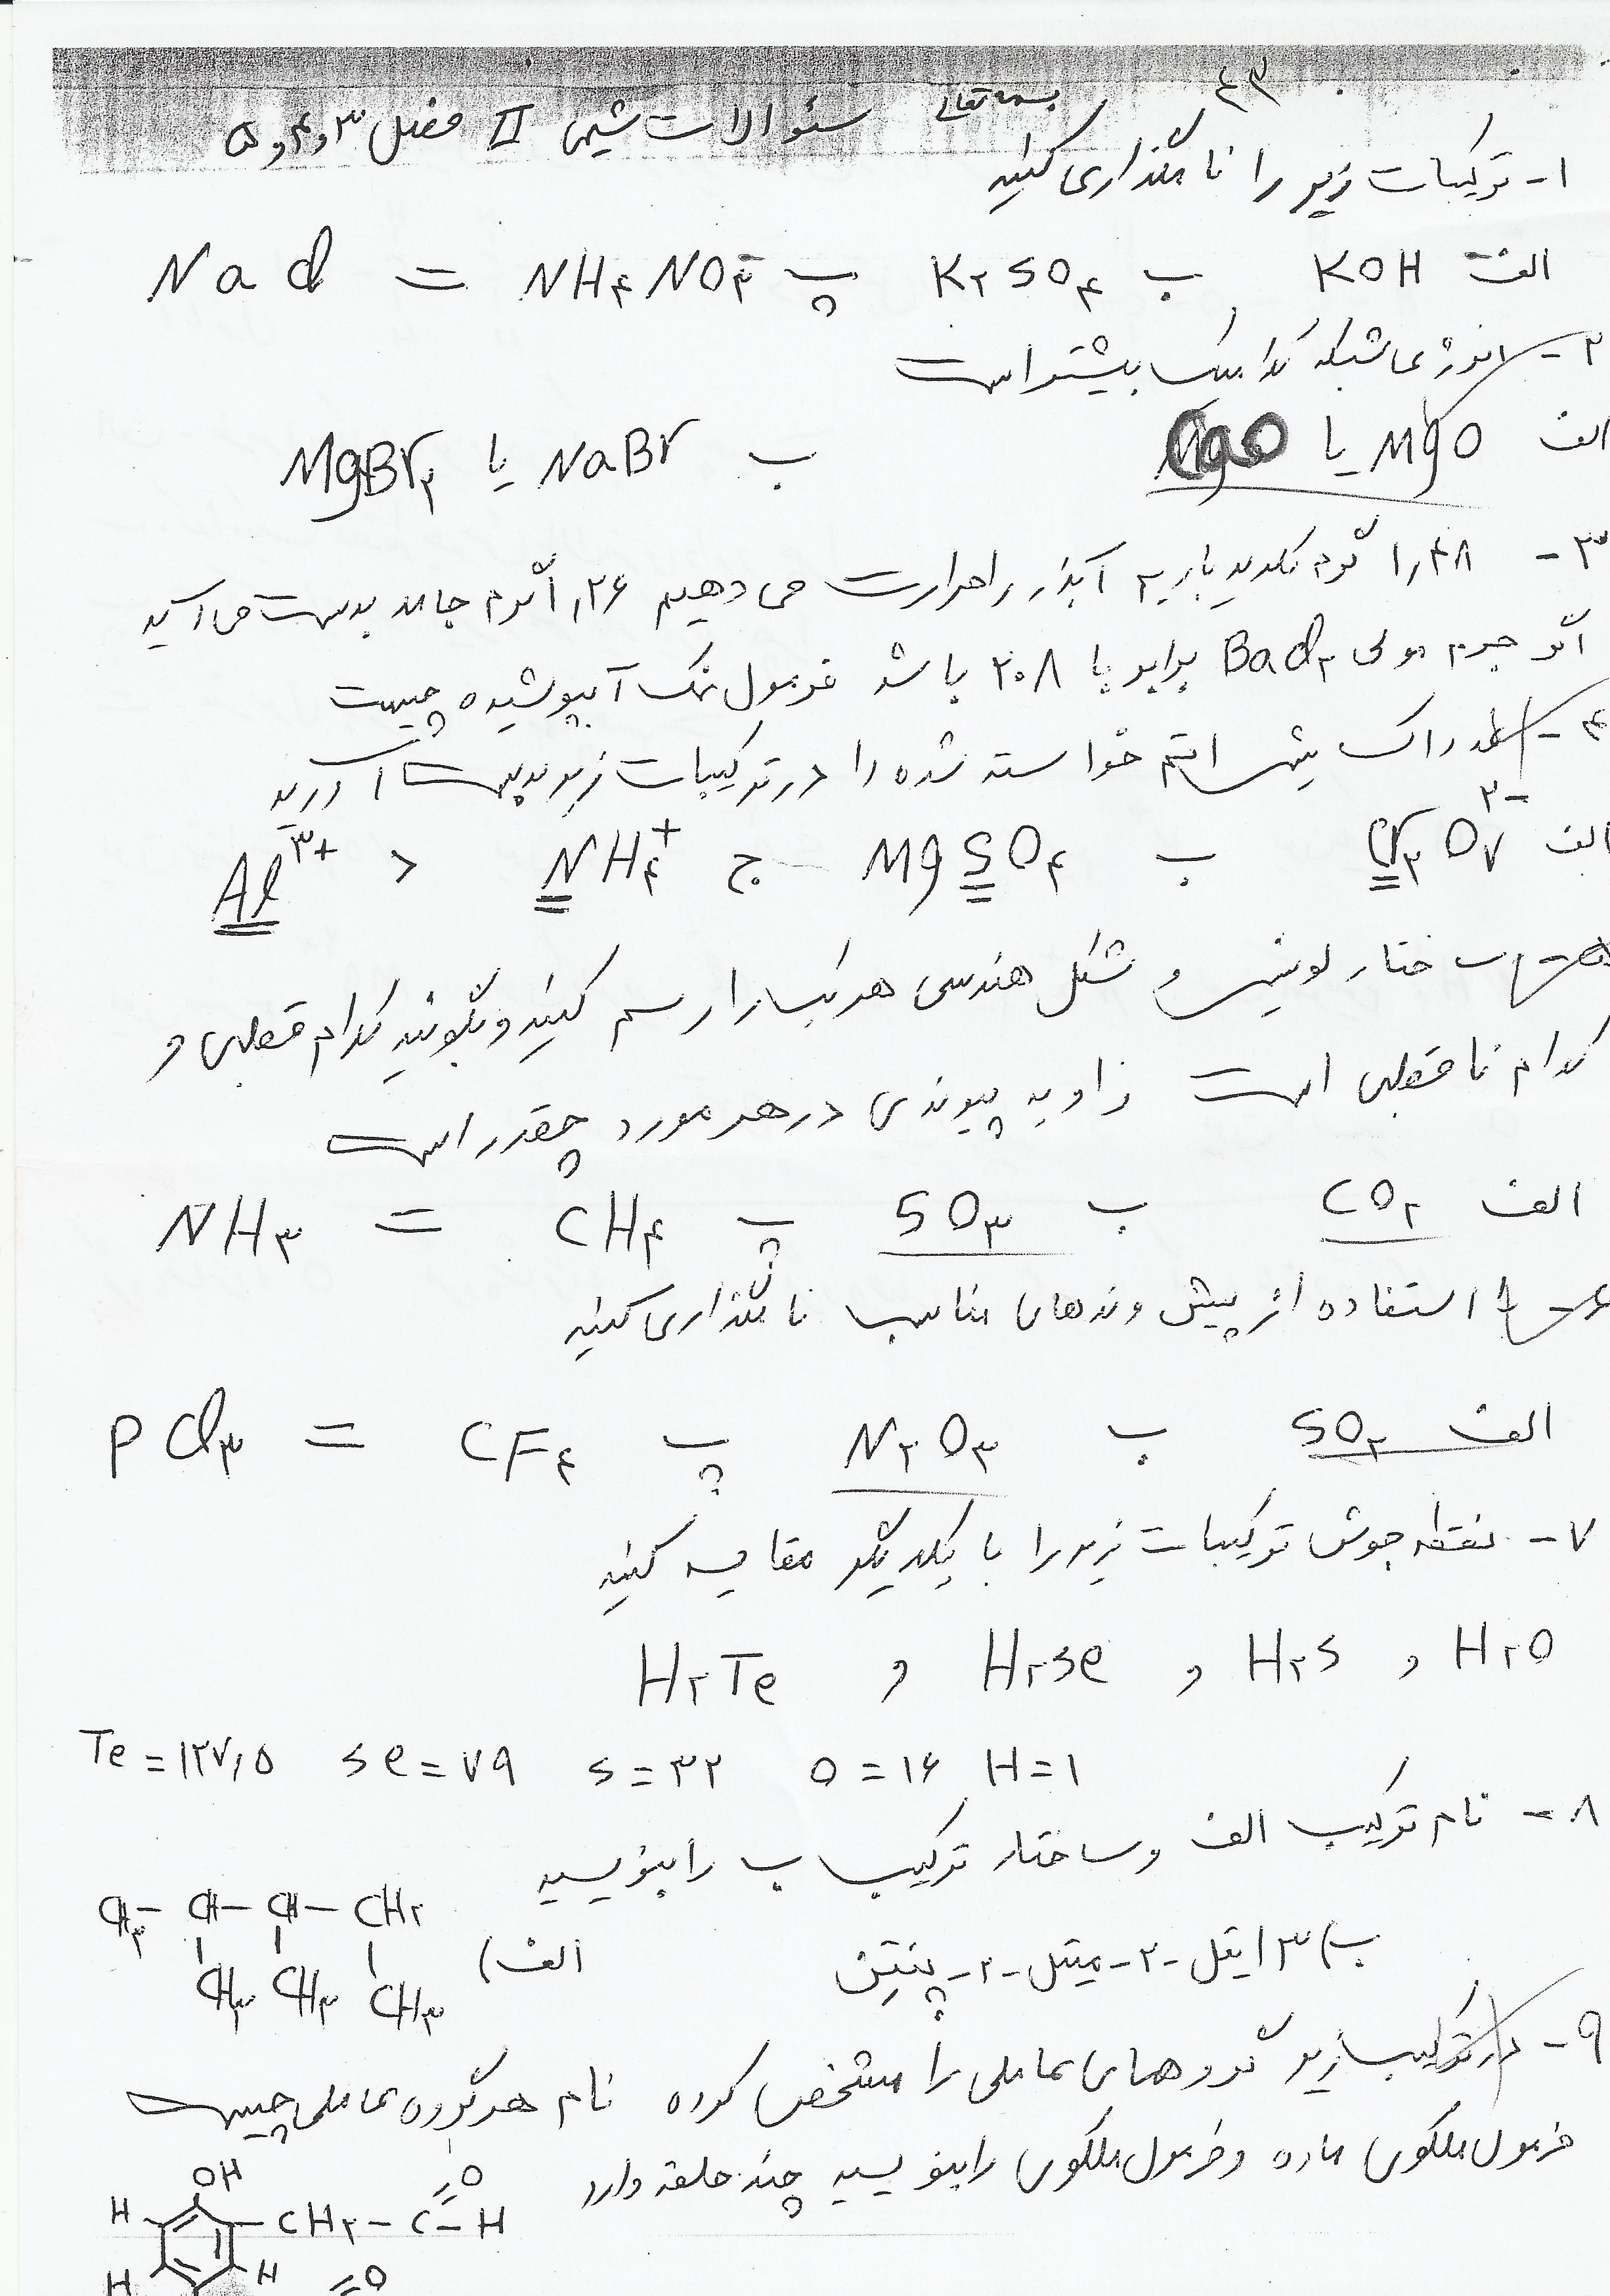 ۴۳
بسمه تعالی
سئوالات شیمی II فصل ۳ و ۴ و ۵
۱- ترکیبات زیر را نامگذاری کنید
الف KOH ب K۲SO۴ پ NH۴NO۳ ت NaCl
۲- انرژی شبکه کدامیک بیشتر است
الف MgO یا CaO ب NaBr یا MgBr۲
۳- ۱,۴۸ گرم کلرید باریم آبدار را حرارت می دهیم ۱,۲۶ گرم جامد بدست می آید
اگر جرم مولی BaCl۲ برابر با ۲۰۸ باشد فرمول نمک آبپوشیده چیست
۴- عدد اکسایش اتم خواسته شده را در ترکیبات زیر بدست آورید
الف Cr۲O۷ ۲- ب MgSO۴ ج NH۴+ د Al۳+
۵- ساختار لوئیس و شکل هندسی هر یک را رسم کنید و بگوئید کدام قطبی و
کدام ناقطبی است زاویه پیوندی در هر مورد چقدر است
الف CO۲ ب SO۳ پ CH۴ ت NH۳
۶- با استفاده از پیش وندهای مناسب نامگذاری کنید
الف SO۲ ب N۲O۳ پ CF۴ ت PCl۳
۷- نقطه جوش ترکیبات زیر را با یکدیگر مقایسه کنید
H۲O و H۲S و H۲Se و H۲Te
H=۱ O=۱۶ S=۳۲ Se=۷۹ Te=۱۲۷,۵
۸- نام ترکیب الف و ساختار ترکیب ب را بنویسید
CH۳-CH-CH-CH۲
الف) CH۳ CH۳ CH۳
ب) ۳ اتیل -۲- متیل -۲- پنتن
۹- در ترکیب زیر گروههای عاملی را مشخص کرده نام هر گروه عاملی چیست
فرمول مولکولی ماده و فرمول مولکولی را بنویسید چند حلقه دارد
OH
H CH۲-C-H O
H H O